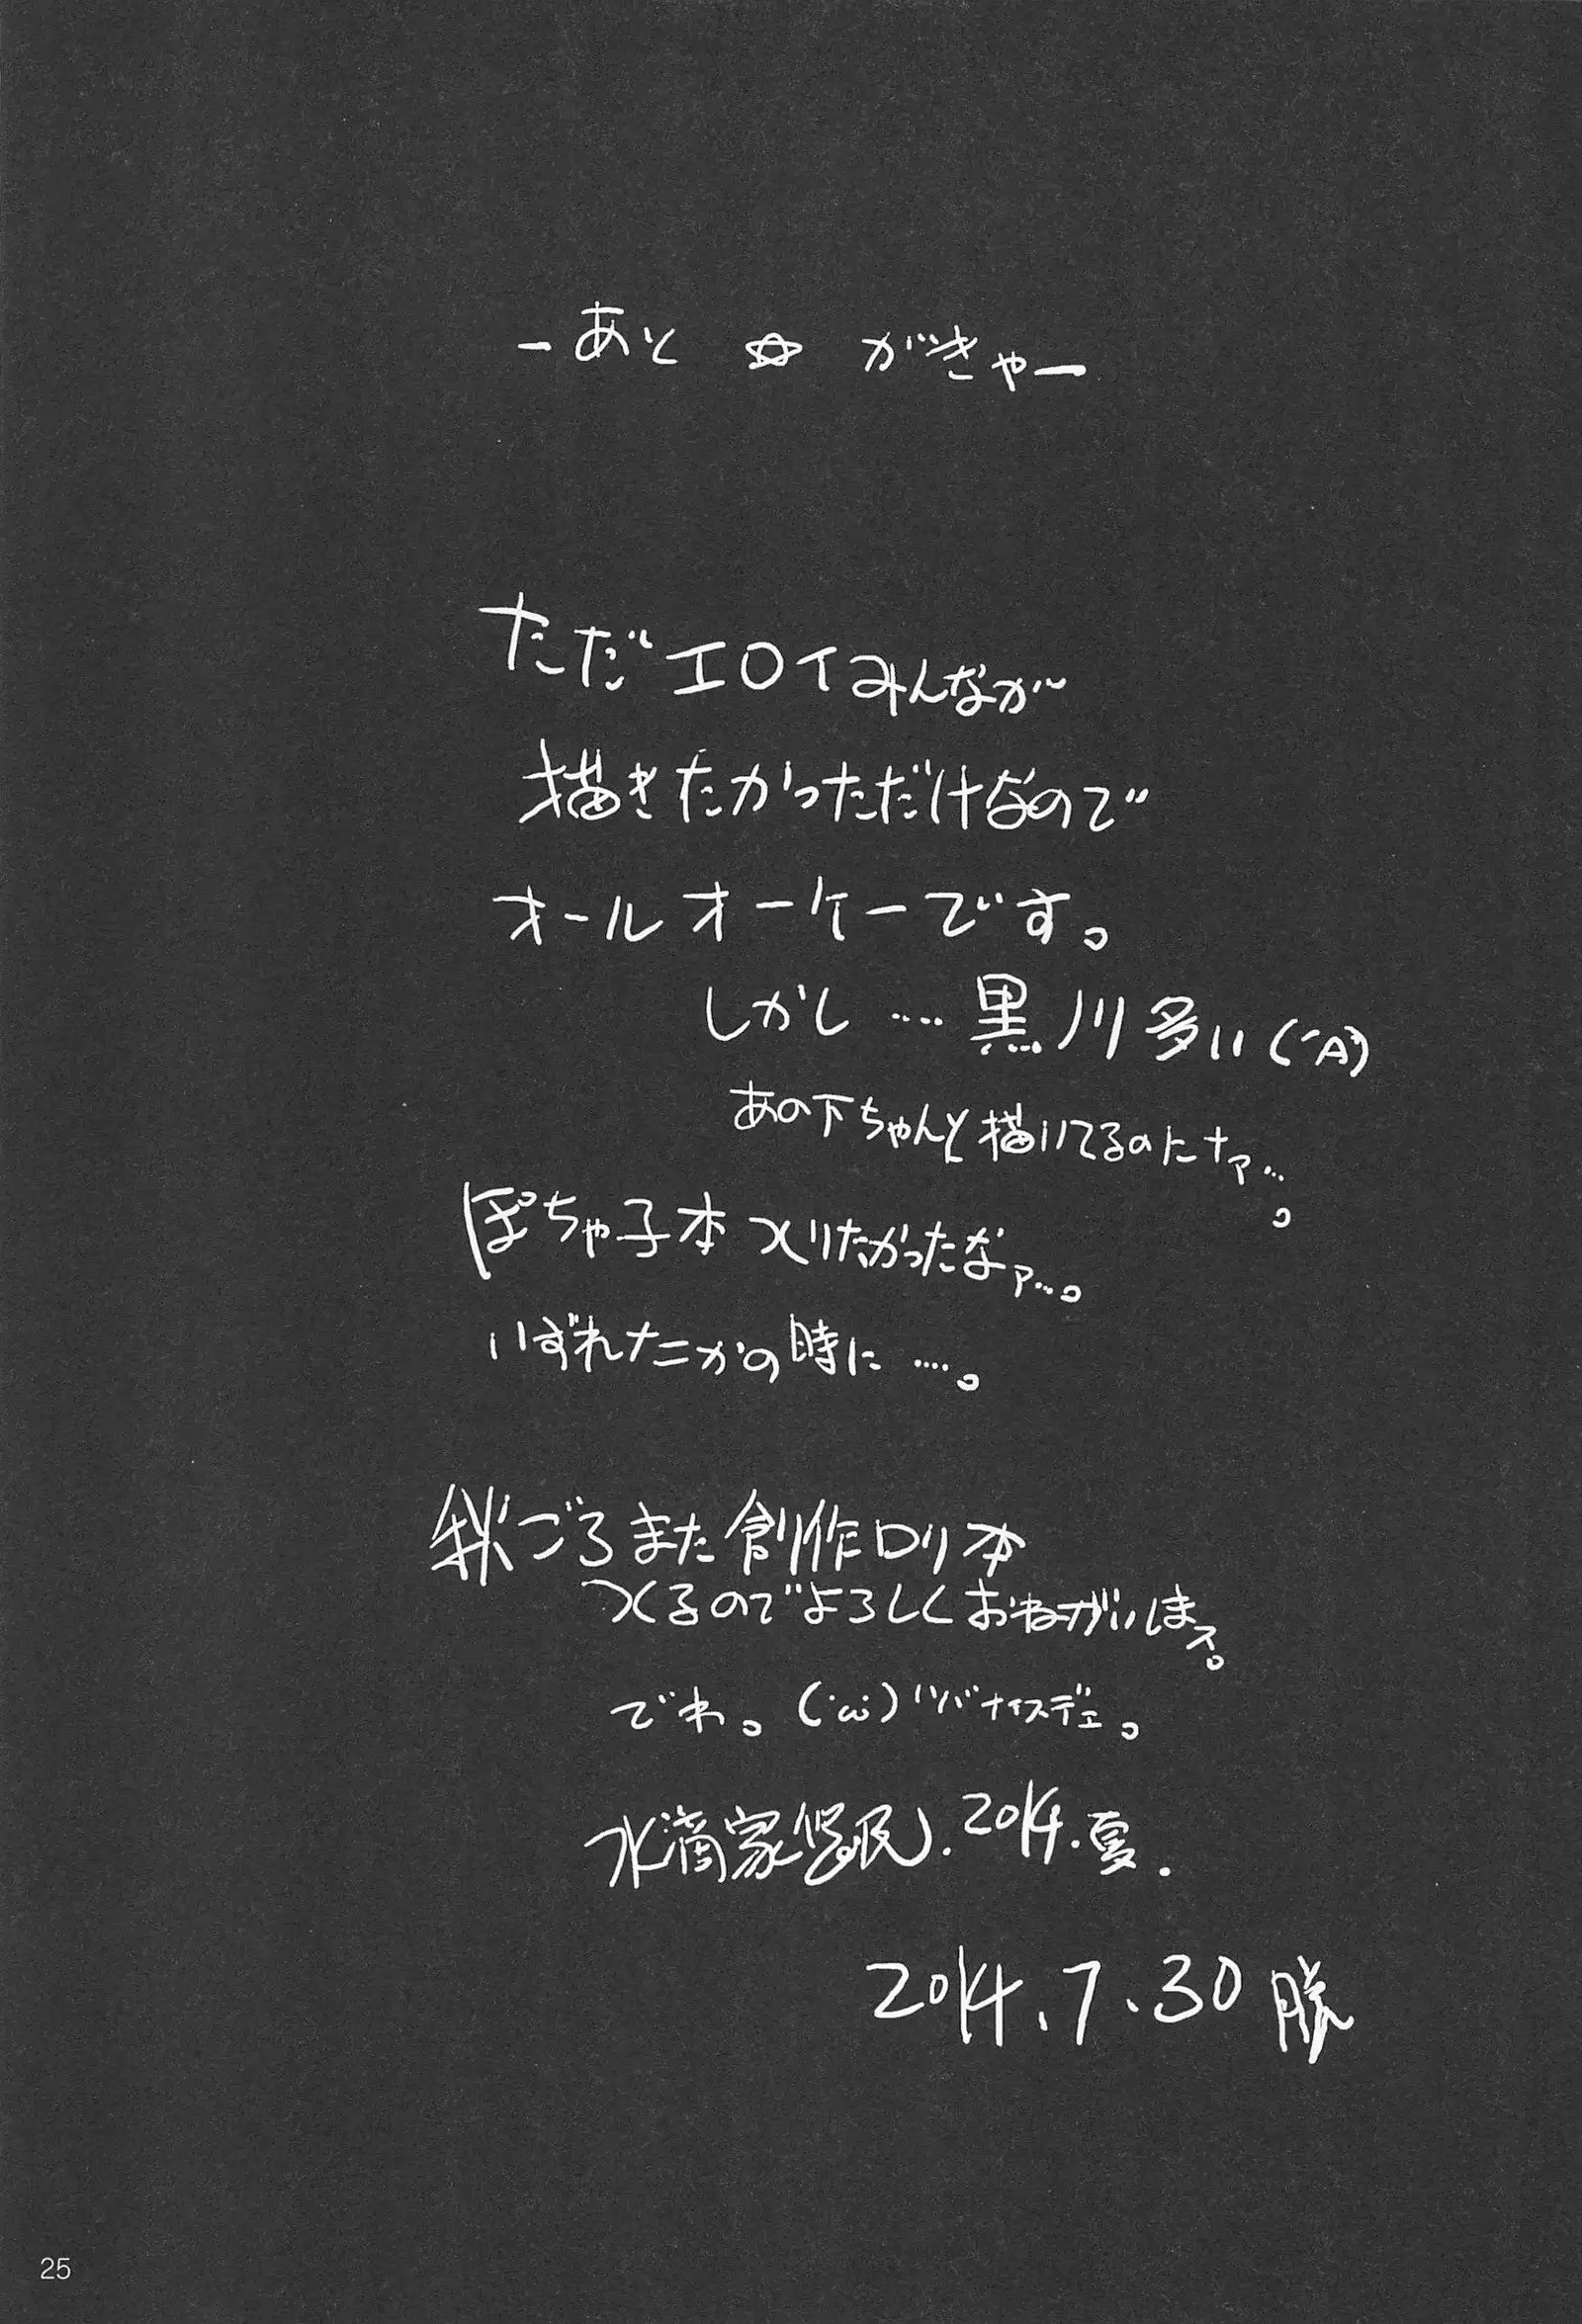 -あと☆がきゃー
ただエロイみんなが
描きたかっただけなので
オールオーケーです。
しかし……黒ノリ多い('A`)
あの下ちゃんと描いてるのにナァ…。
ぽちゃ子本つくりたかったなァ…。
いずれナニかの時に……。
秋ごろまた創作ロリ本
つくるのでよろしくおねがいしまス。
でわ。(´ω`)ノシバナイスデェ。
水滴家 2014.夏.
2014.7.30
25